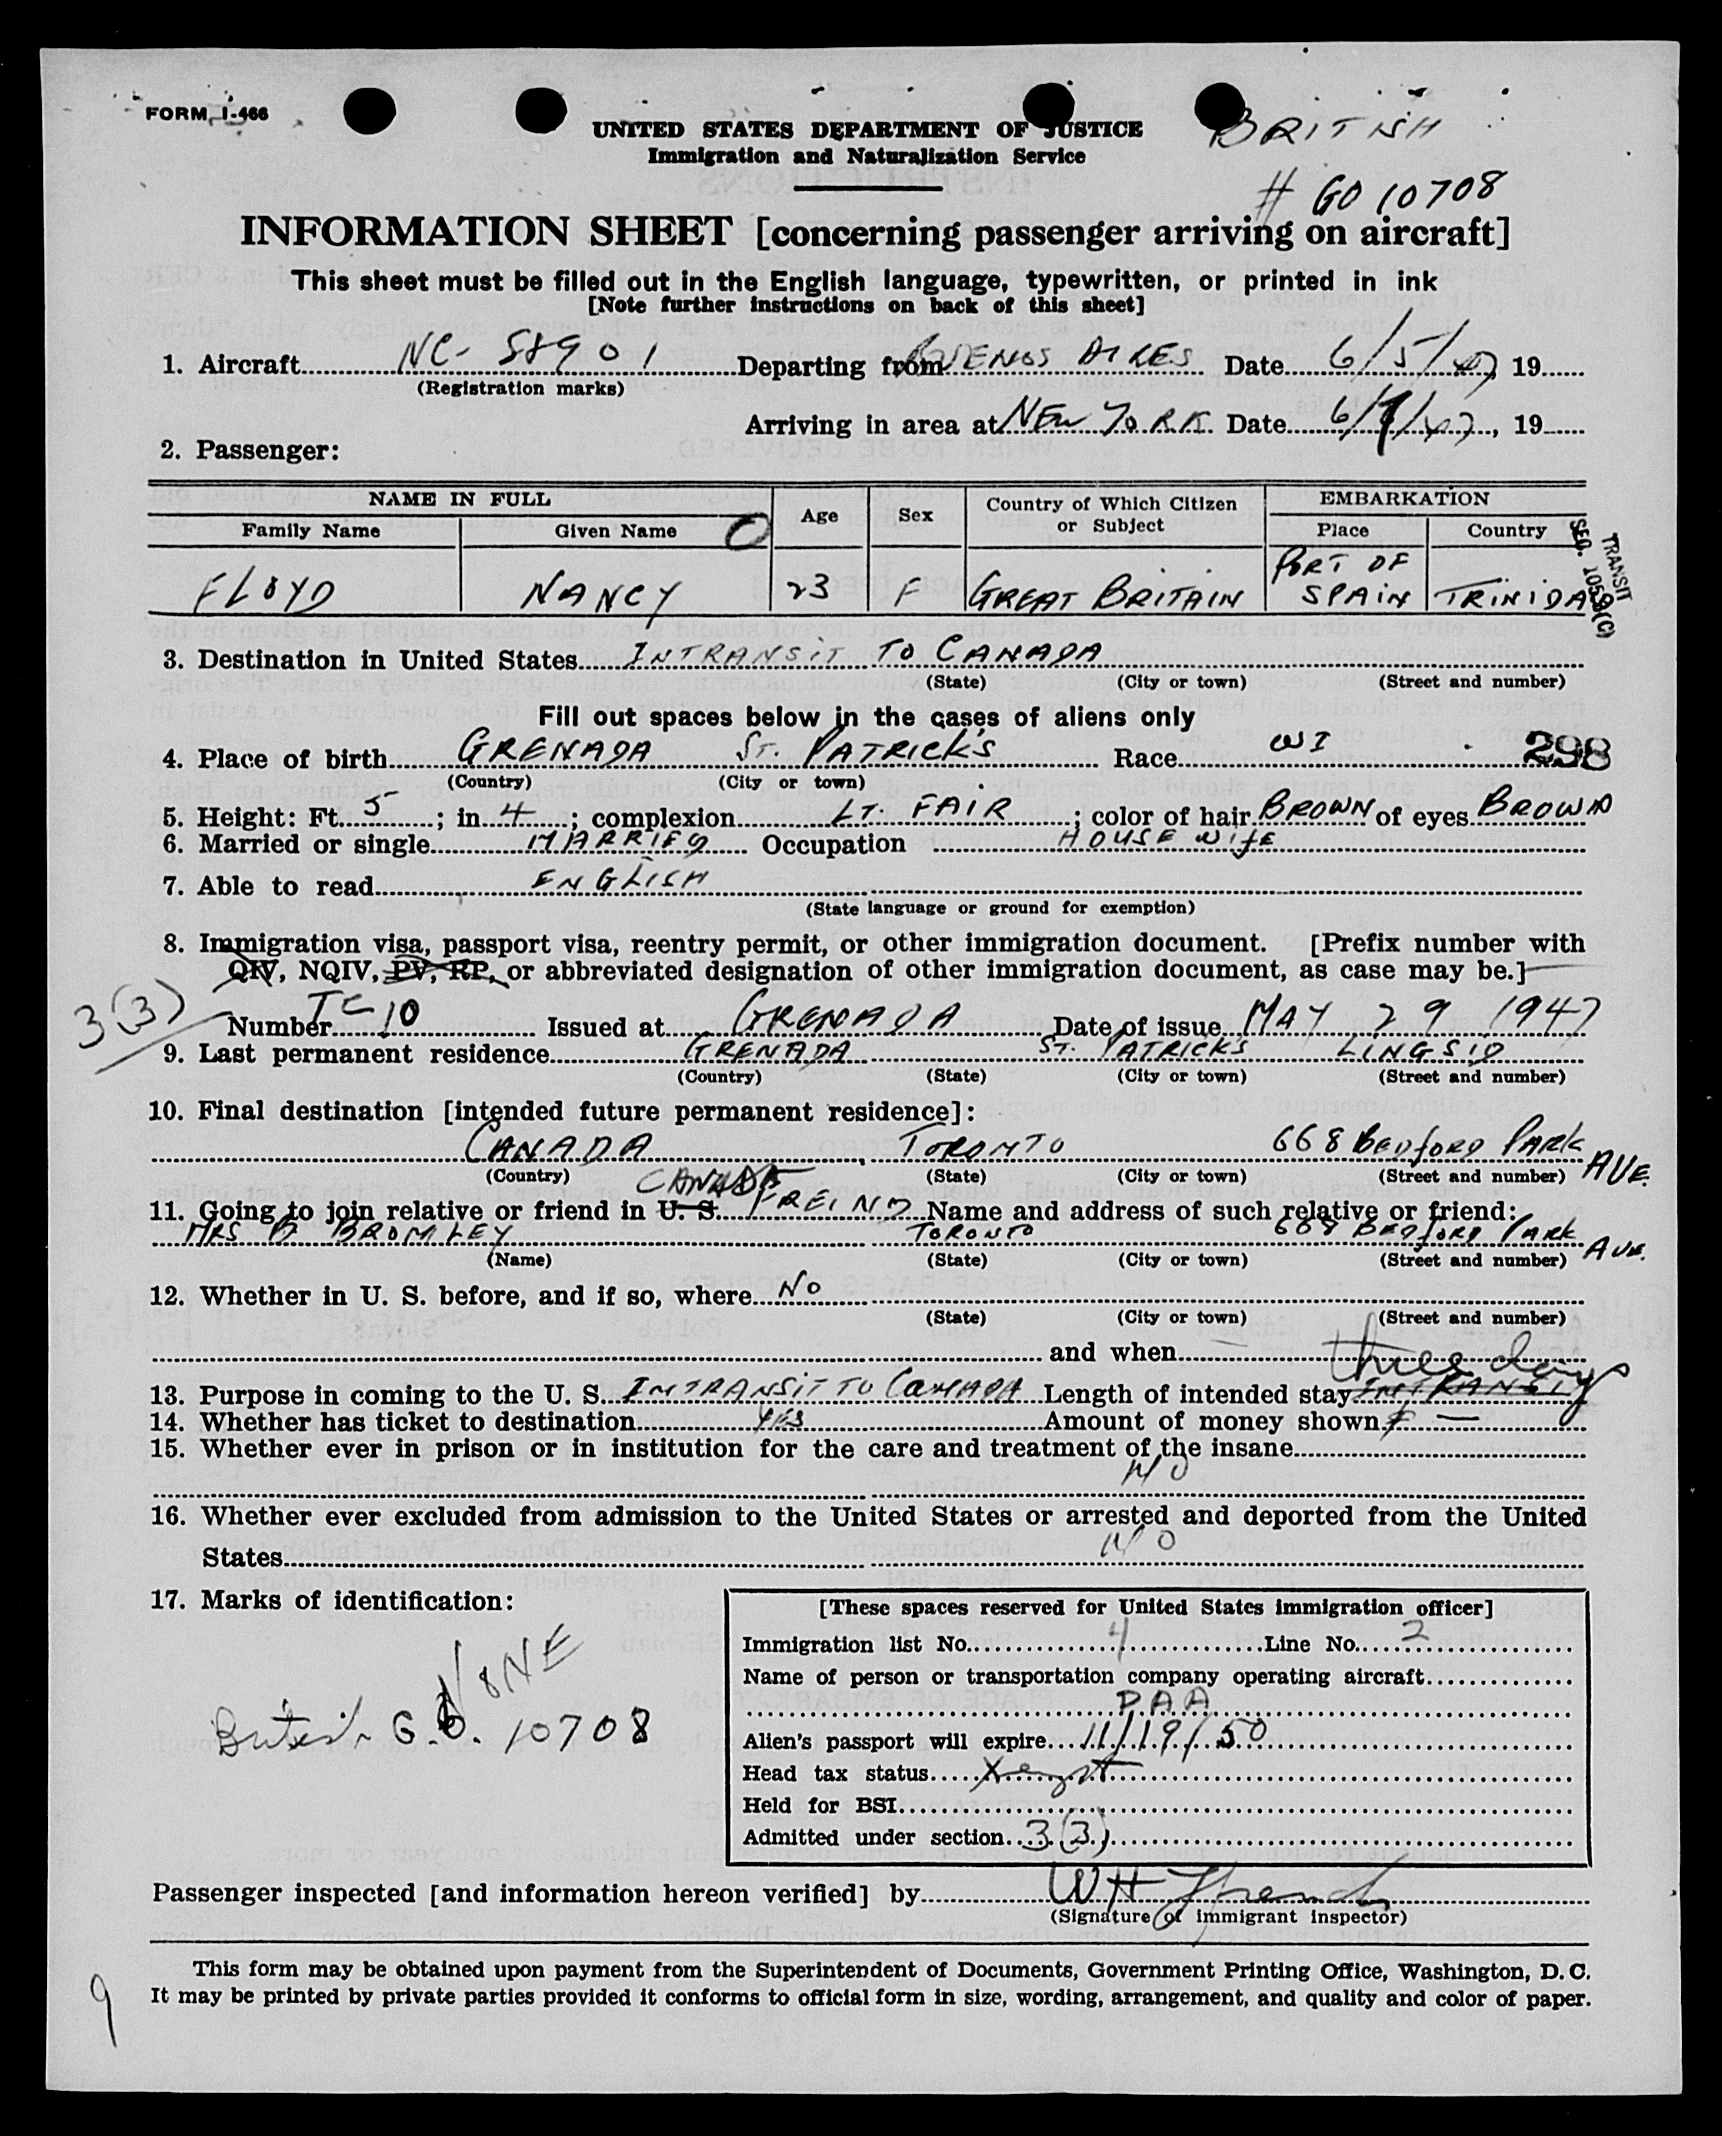 FORM I-466
UNITED STATES DEPARTMENT OF JUSTICE
Immigration and Naturalization Service
BRITISH
# GO 10708
INFORMATION SHEET [concerning passenger arriving on aircraft]
This sheet must be filled out in the English language, typewritten, or printed in ink
[Note further instructions on back of this sheet]
1. Aircraft NC- 58901 Departing from BUENOS AIRES Date 6/5/47, 19
(Registration marks)
Arriving in area at NEW YORK Date 6/7/47, 19
2. Passenger:
NAME IN FULL Age Sex Country of Which Citizen or Subject EMBARKATION
Family Name Given Name Place Country
FLOYD NANCY 23 F GREAT BRITAIN PORT OF SPAIN TRINIDAD
TRANSIT
SEG. 1059(C)
3. Destination in United States INTRANSIT TO CANADA
(State) (City or town) (Street and number)
Fill out spaces below in the cases of aliens only
4. Place of birth GRENADA ST. PATRICK'S Race WI 298
(Country) (City or town)
5. Height: Ft. 5; in. 4; complexion LT. FAIR; color of hair BROWN of eyes BROWN
6. Married or single MARRIED Occupation HOUSE WIFE
7. Able to read ENGLISH
(State language or ground for exemption)
8. Immigration visa, passport visa, reentry permit, or other immigration document. [Prefix number with
QIV, NQIV, PV, RP, or abbreviated designation of other immigration document, as case may be.]
3(3)
Number TC 10 Issued at GRENADA Date of issue MAY 29 1947
9. Last permanent residence GRENADA ST. PATRICK'S
(Country) (State) (City or town) (Street and number)
10. Final destination [intended future permanent residence]:
CANADA, TORONTO 668 BEDFORD PARK AVE.
(Country) (State) (City or town) (Street and number)
CANADA
11. Going to join relative or friend in U. S. FREIND Name and address of such relative or friend:
MRS BROMLEY TORONTO 668 BEDFORD PARK AVE.
(Name) (State) (City or town) (Street and number)
12. Whether in U. S. before, and if so, where No
(State) (City or town) (Street and number)
and when
three days
13. Purpose in coming to the U. S. INTRANSIT TO CANADA Length of intended stay INTRANSIT
14. Whether has ticket to destination YES Amount of money shown
15. Whether ever in prison or in institution for the care and treatment of the insane
NO
16. Whether ever excluded from admission to the United States or arrested and deported from the United
States NO
17. Marks of identification:
NONE
British G.O. 10708
[These spaces reserved for United States immigration officer]
Immigration list No. 4 Line No. 2
Name of person or transportation company operating aircraft
P.A.A.
Alien's passport will expire 11/19/50
Head tax status
Held for BSI
Admitted under section 3(3)
Passenger inspected [and information hereon verified] by WH
(Signature of immigrant inspector)
This form may be obtained upon payment from the Superintendent of Documents, Government Printing Office, Washington, D. C.
It may be printed by private parties provided it conforms to official form in size, wording, arrangement, and quality and color of paper.
9